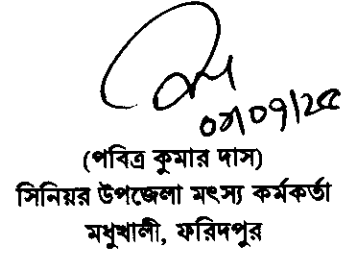 (পবিত্র কুমার দাস)
সিনিয়র উপজেলা মৎস্য কর্মকর্তা
মধুখালী, ফরিদপুর